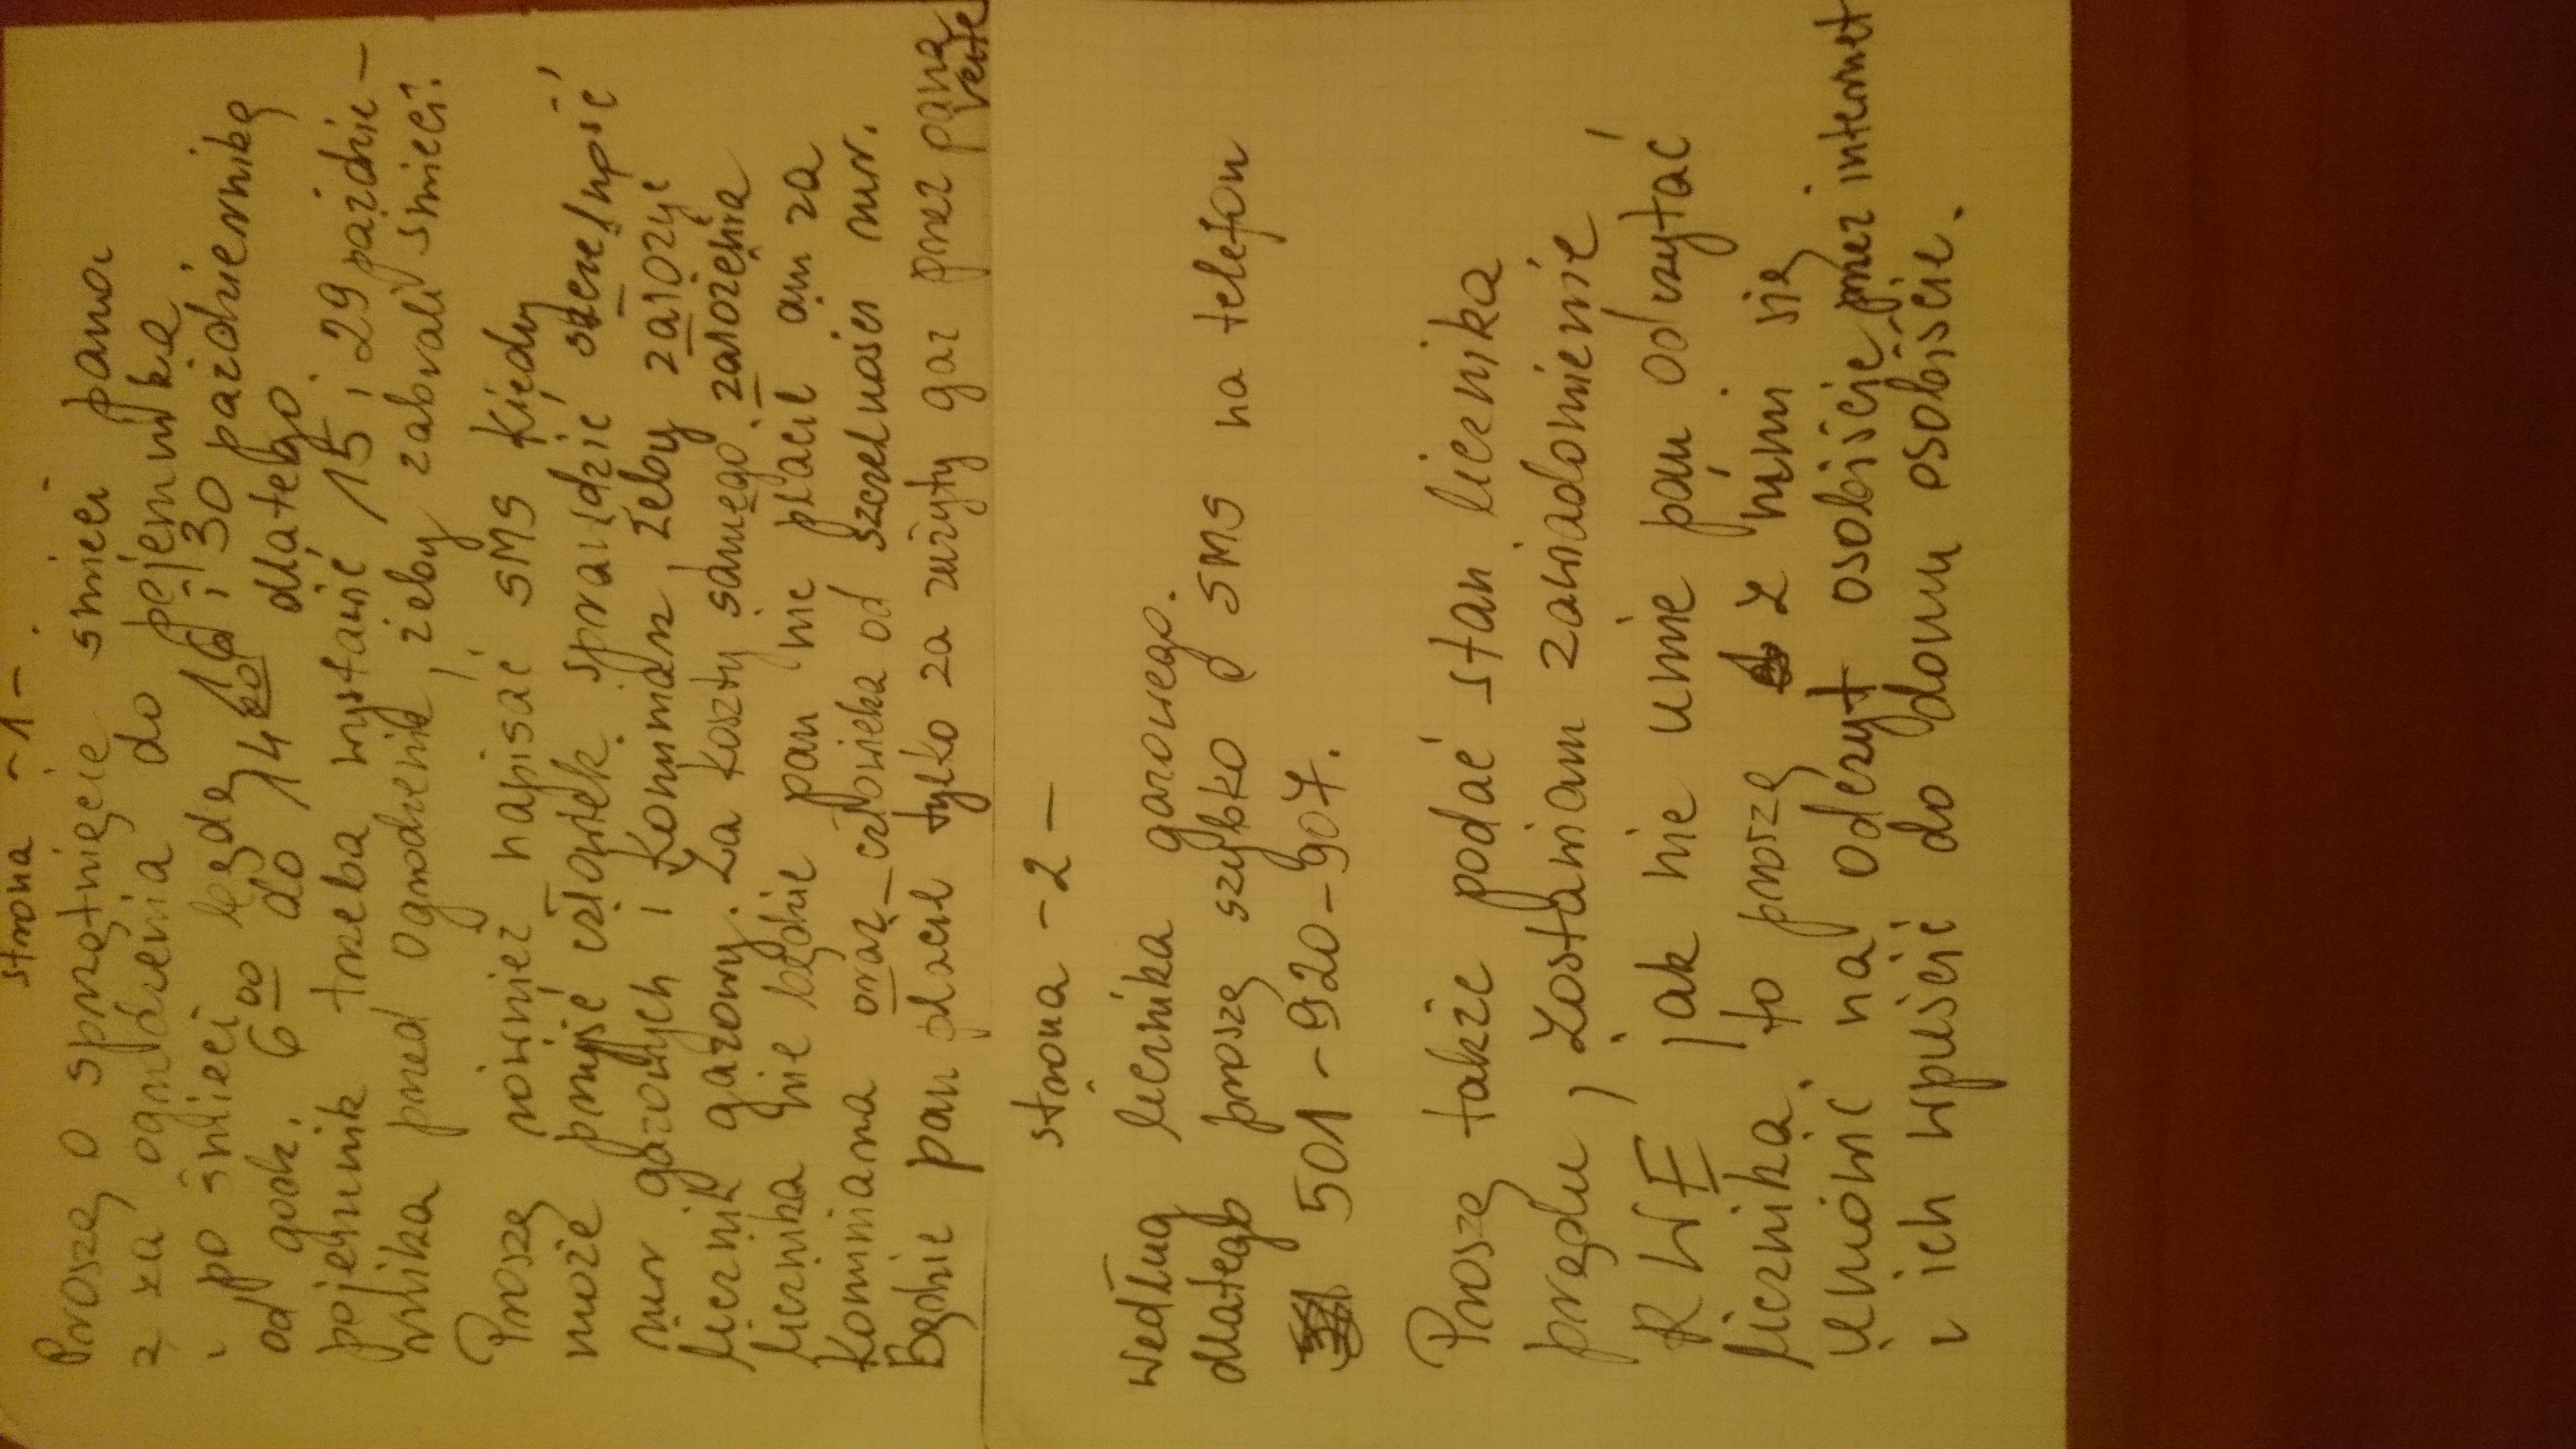 strona -1-
Proszę o sprzątnięcie śmieci pana
z za ogrodzenia do pojemnika
i po śmieci będą 16 i 30 października
od godz. 6 00 do 14 00 dlatego
pojemnik trzeba wystawić 15 i 29 paździe-
rnika przed ogrodzenie, żeby zabrali śmieci.
Proszę również napisać SMS kiedy
może przyjść człowiek sprawdzić szczelność
rur gazowych i kominiarz, żeby założyć
licznik gazowy. Za koszty samego założenia
licznika nie będzie pan nie płacił ani za
kominiarza oraz człowieka od szczelności rur.
Będzie pan płacił tylko za zużyty gaz przez pana
verte
strona -2-
według licznika gazowego.
dlatego proszę szybko SMS na telefon
501-920-907.
Proszę także podać stan licznika
prądu, zostawiam zawiadomienie
RWE jak nie umie pan odczytać
licznika, to proszę z nimi się
umówić na odczyt osobiście, przez internet
i ich wpuścić do domu osobiście.